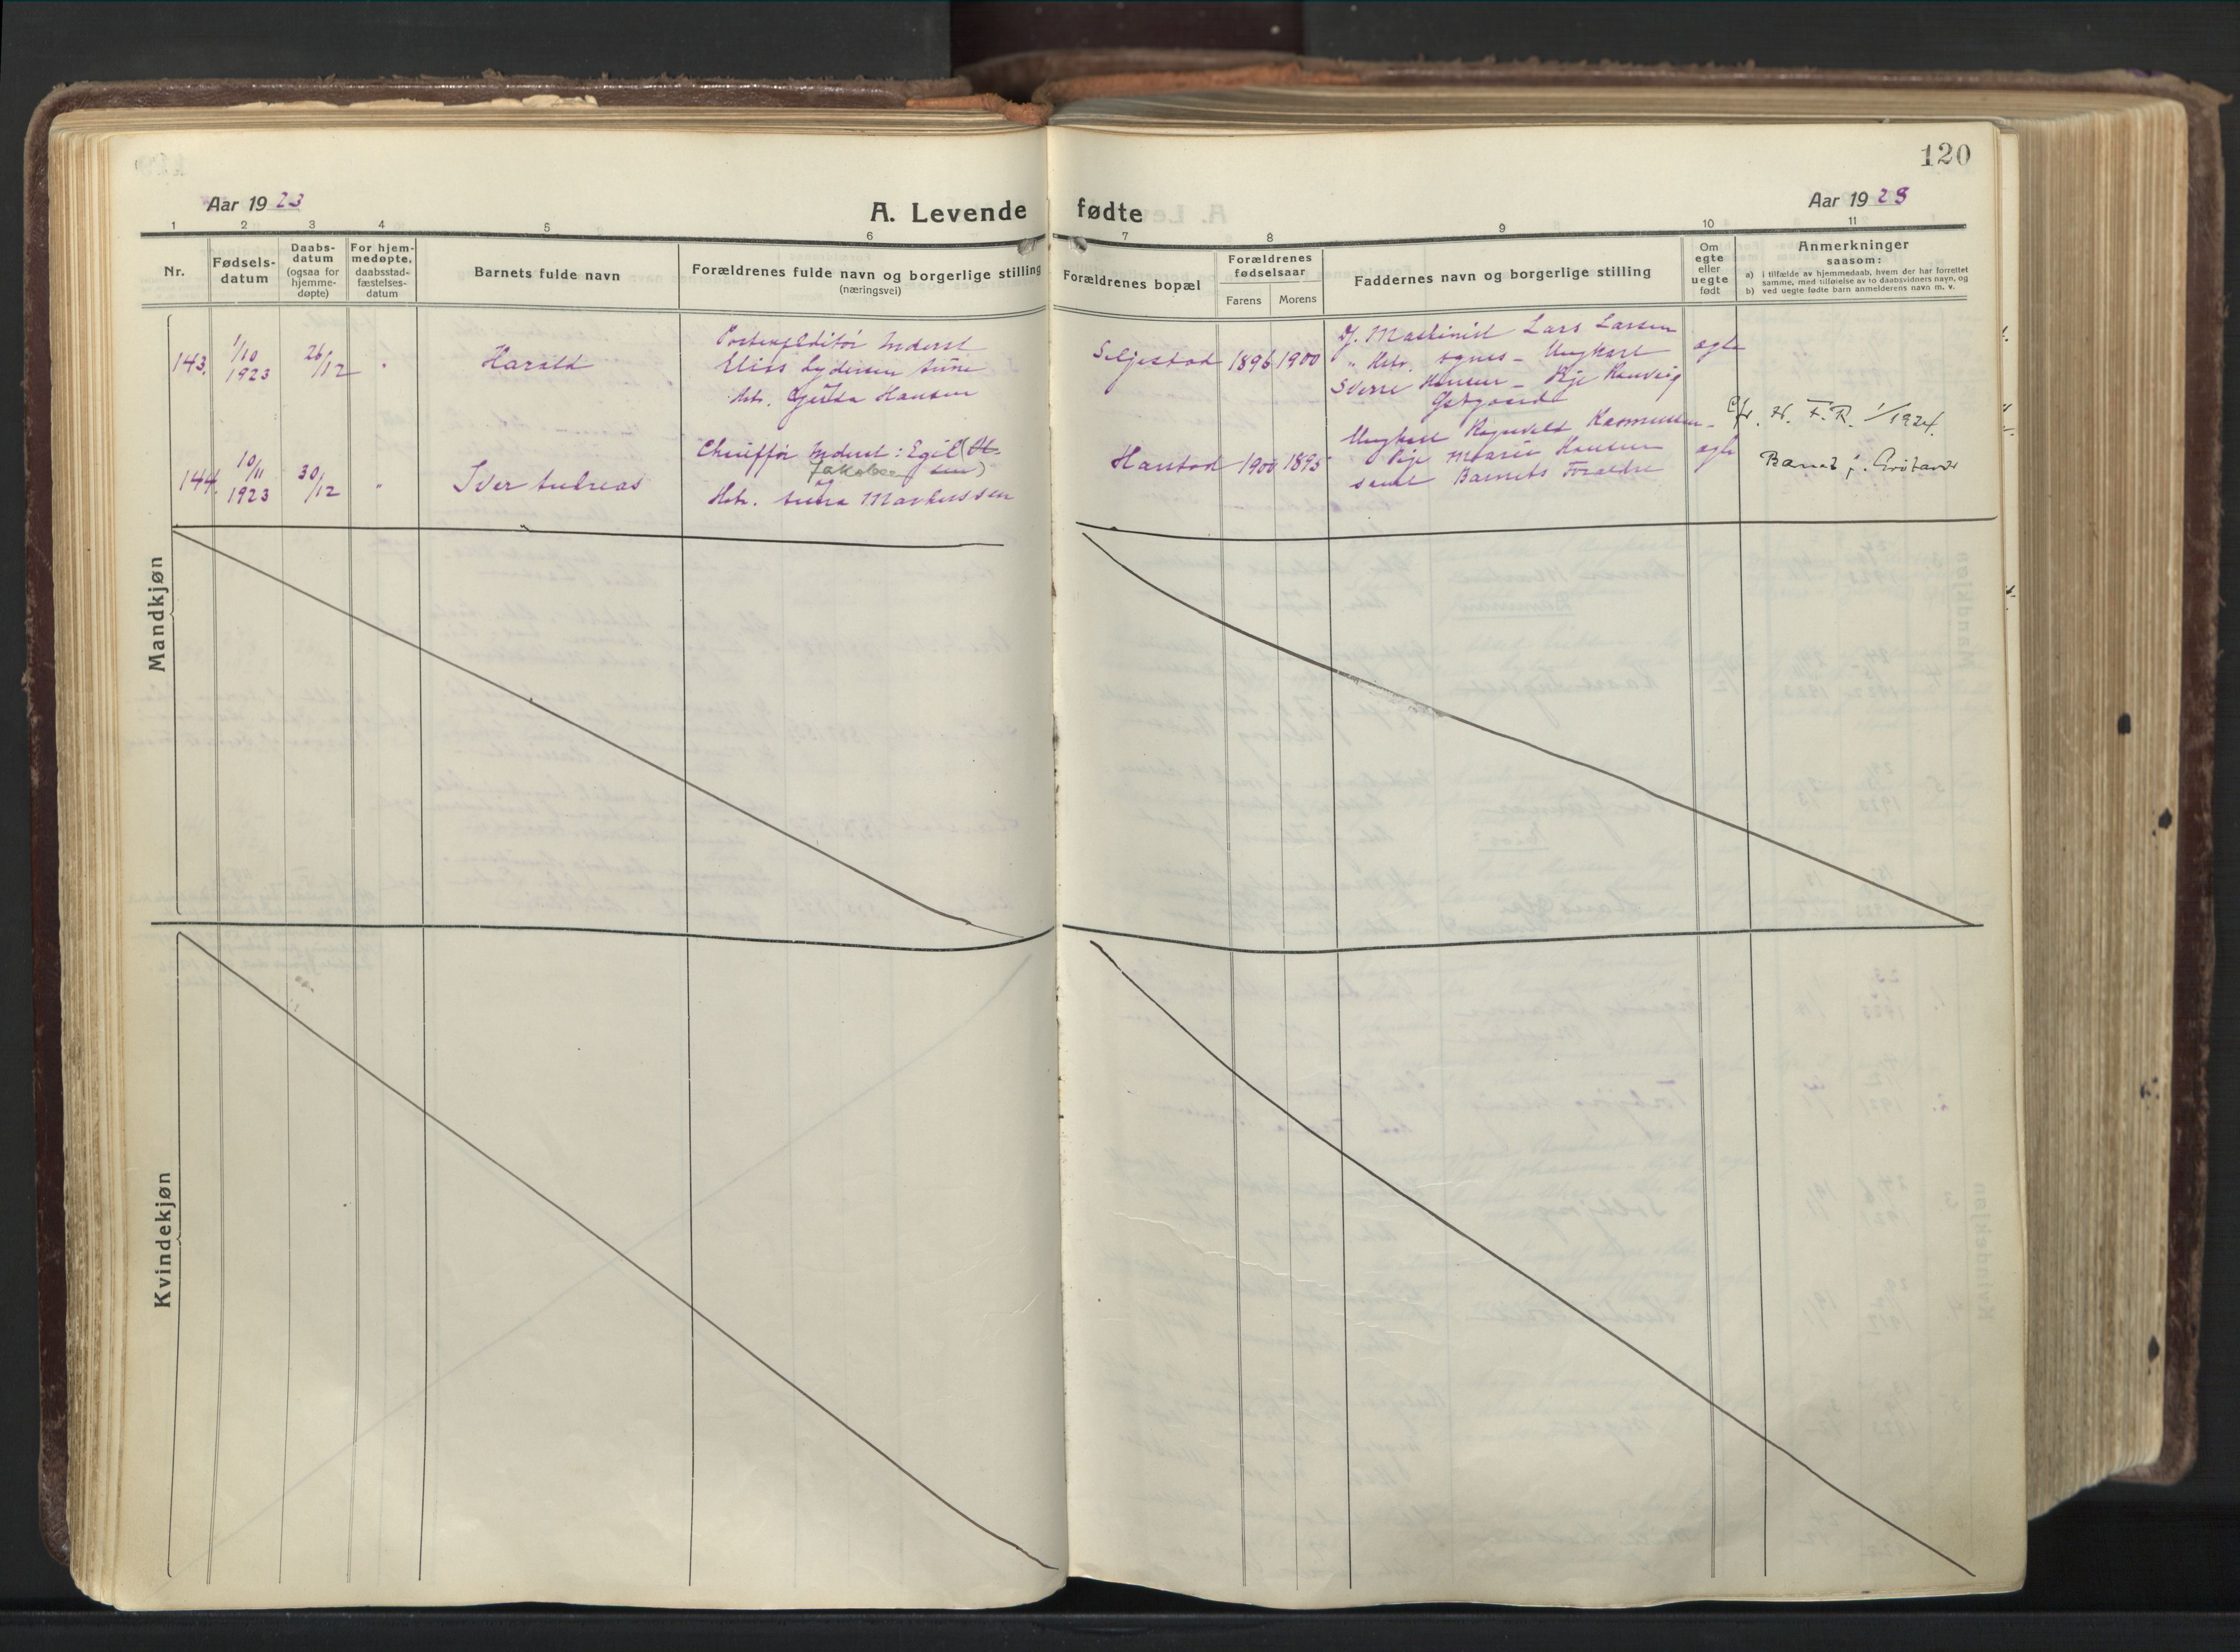 120
Aar 1923
A. Levende fødte
Aar 1923
1 2 3 4 5 6 7 8 9 10 11
Nr.
Fødsels-
datum
Daabs-
datum
(ogsaa for
hjemme-
døpte)
For hjem-
medøpte,
daabsstad-
fæstelses-
datum
Barnets fulde navn
Forældrenes fulde navn og borgerlige stilling
(næringsvei)
Forældrenes bopæl
Forældrenes
fødselsaar
Farens Morens
Faddernes navn og borgerlige stilling
Om
egte
eller
uegte
født
Anmerkninger
saasom:
a) i tilfælde av hjemmedaab, hvem der har forrettet
samme, med tilføielse av to daabsvidners navn, og
b) ved uegte fødte barn anmelderens navn m. v.
Mandkjøn
143.
1/10
1923
26/12
"
Harald
Lydersen
Hansen
1896 1900
Gf. Maskinist Lars Larsen
" Hstr. Agnes – Ungkarl
Sverre Hansen – Pije
144.
10/11
1923
30/12
"
Iver Andreas
Egil
Jakobsen
Hstr. Anna Markussen
Harstad
1900 1895
Ungkarl Rasmussen –
Pije Marie Hansen
samt Barnets Forældre
egte
Cfr. N. F. R. 1/1924.
Kvindekjøn